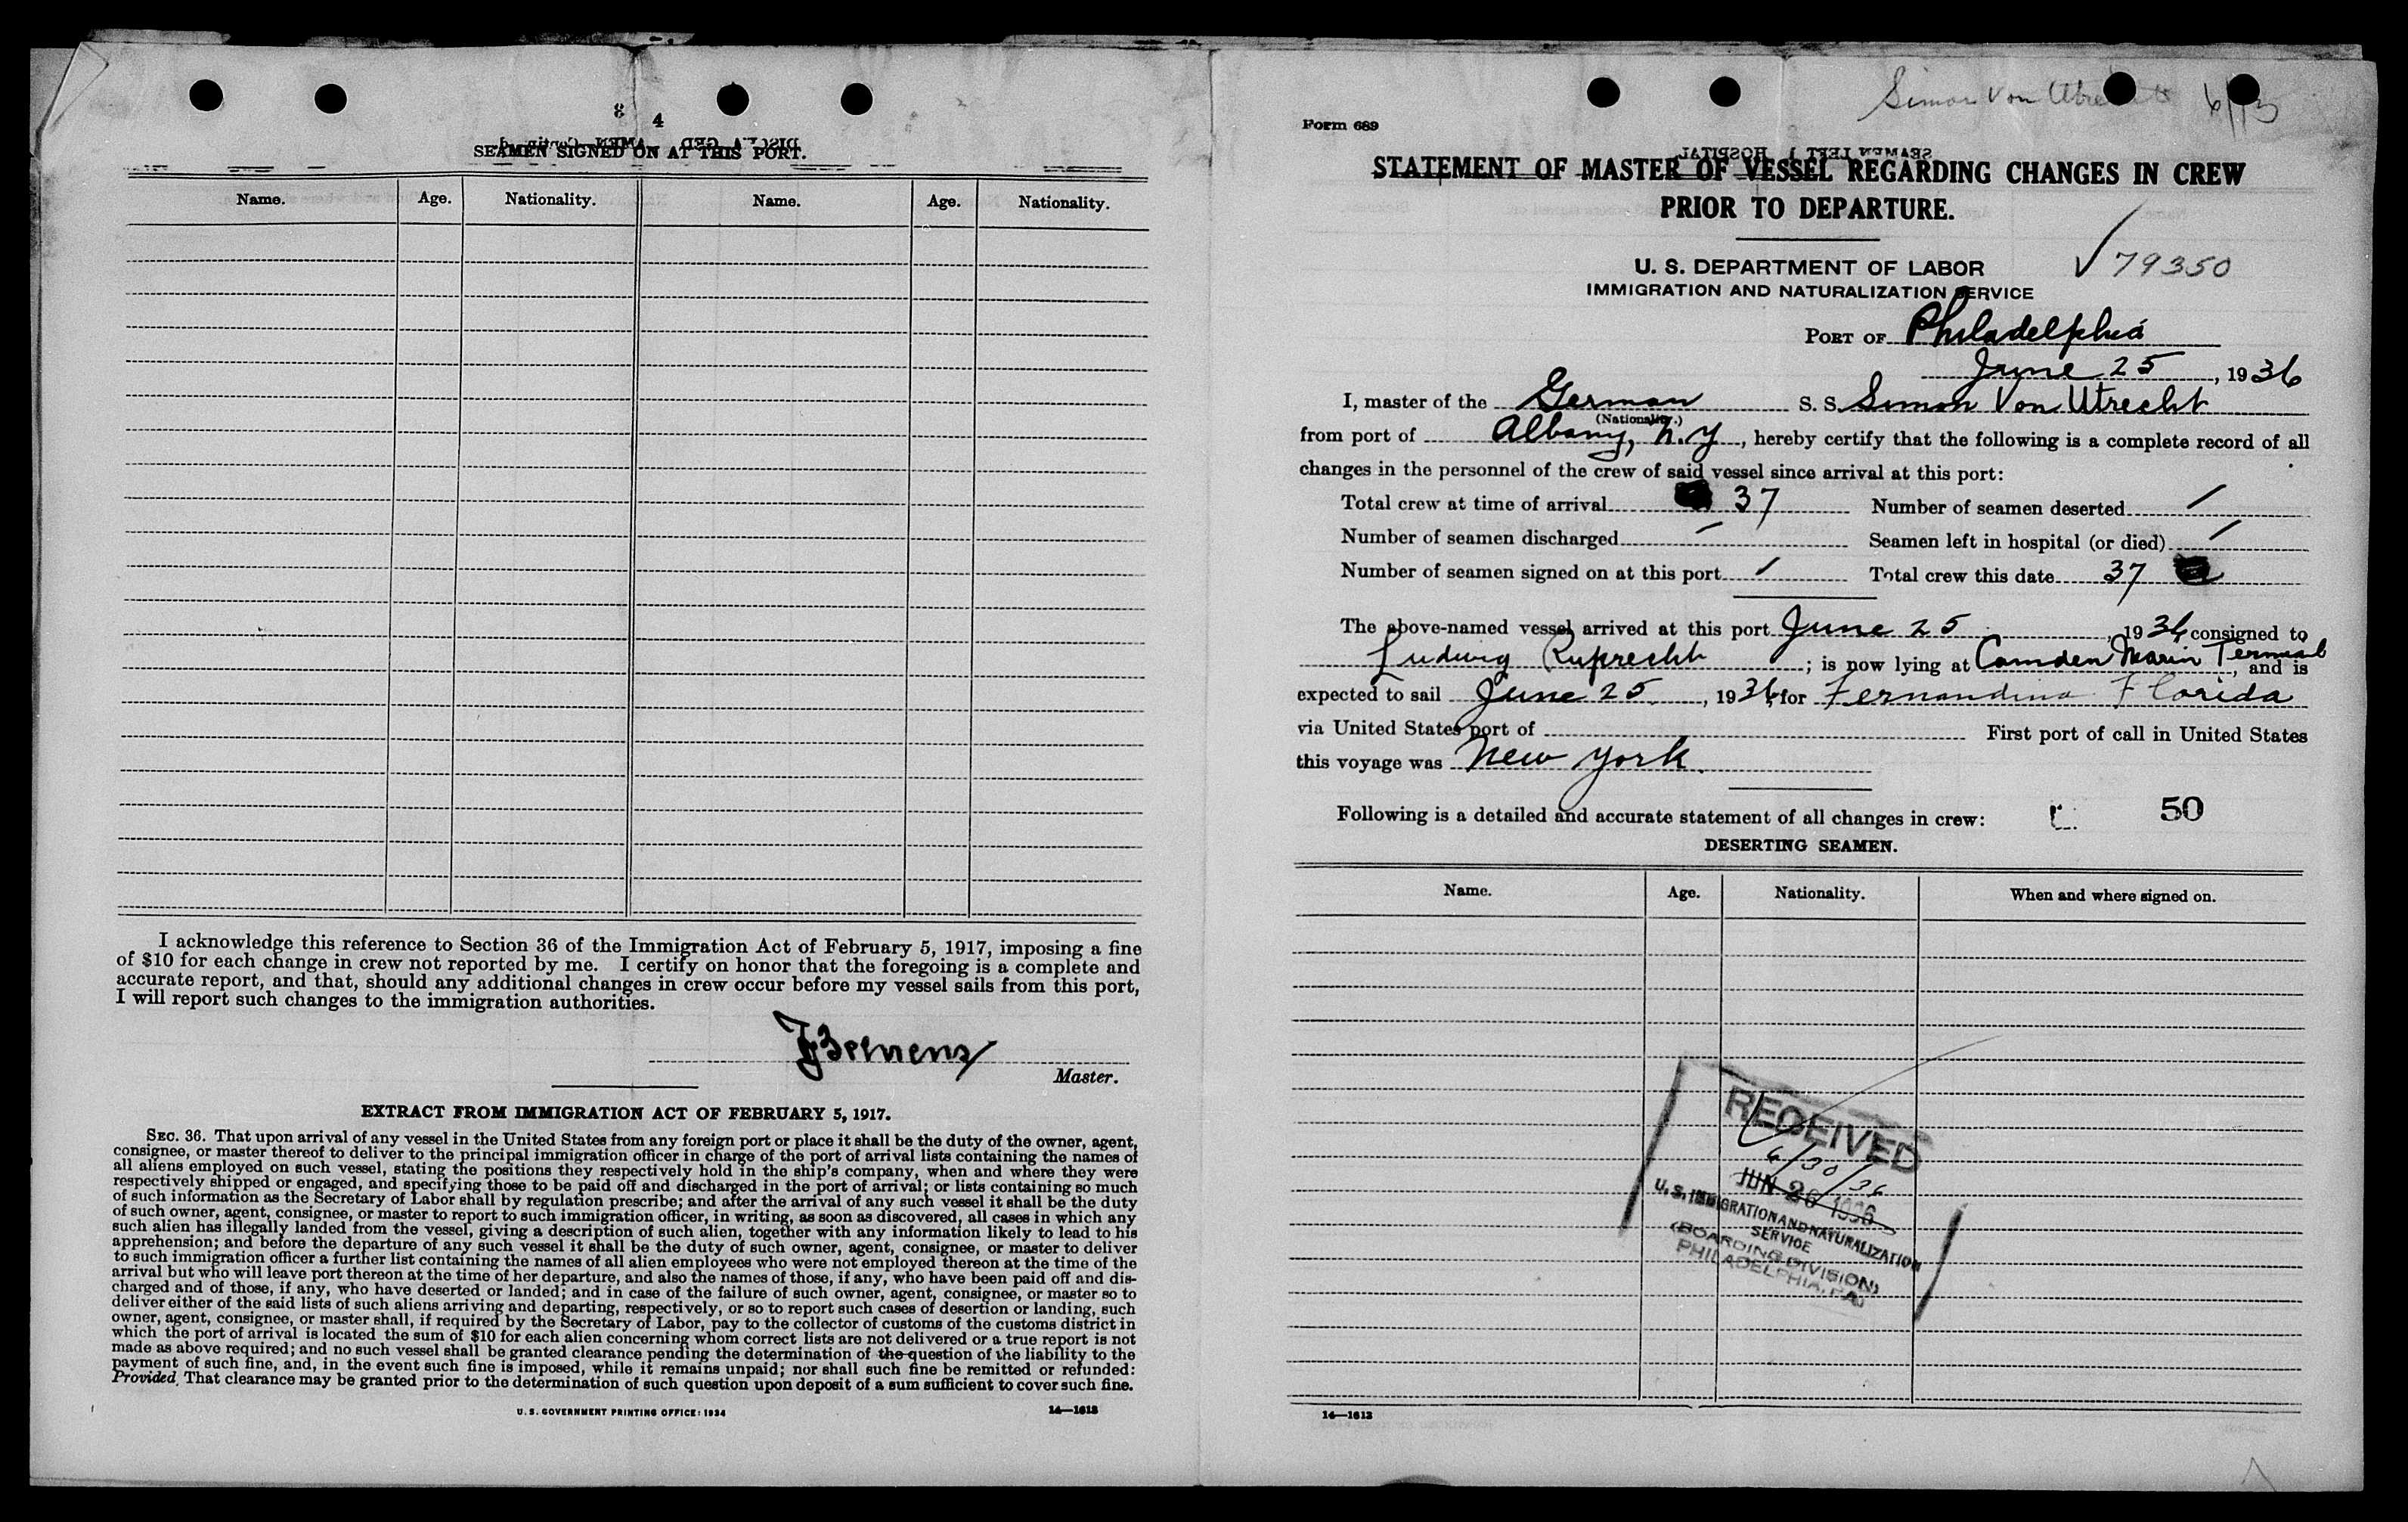 4
SEAMEN SIGNED ON AT THIS PORT.
Name. Age. Nationality. Name. Age. Nationality.
I acknowledge this reference to Section 36 of the Immigration Act of February 5, 1917, imposing a fine
of $10 for each change in crew not reported by me. I certify on honor that the foregoing is a complete and
accurate report, and that, should any additional changes in crew occur before my vessel sails from this port,
I will report such changes to the immigration authorities.
Master.
EXTRACT FROM IMMIGRATION ACT OF FEBRUARY 5, 1917.
SEC. 36. That upon arrival of any vessel in the United States from any foreign port or place it shall be the duty of the owner, agent,
consignee, or master thereof to deliver to the principal immigration officer in charge of the port of arrival lists containing the names of
all aliens employed on such vessel, stating the positions they respectively hold in the ship's company, when and where they were
respectively shipped or engaged, and specifying those to be paid off and discharged in the port of arrival; or lists containing so much
of such information as the Secretary of Labor shall by regulation prescribe; and after the arrival of any such vessel it shall be the duty
of such owner, agent, consignee, or master to report to such immigration officer, in writing, as soon as discovered, all cases in which any
such alien has illegally landed from the vessel, giving a description of such alien, together with any information likely to lead to his
apprehension; and before the departure of any such vessel it shall be the duty of such owner, agent, consignee, or master to deliver
to such immigration officer a further list containing the names of all alien employees who were not employed thereon at the time of the
arrival but who will leave port thereon at the time of her departure, and also the names of those, if any, who have been paid off and dis-
charged and of those, if any, who have deserted or landed; and in case of the failure of such owner, agent, consignee, or master so to
deliver either of the said lists of such aliens arriving and departing, respectively, or so to report such cases of desertion or landing, such
owner, agent, consignee, or master shall, if required by the Secretary of Labor, pay to the collector of customs of the customs district in
which the port of arrival is located the sum of $10 for each alien concerning whom correct lists are not delivered or a true report is not
made as above required; and no such vessel shall be granted clearance pending the determination of the question of the liability to the
payment of such fine, and, in the event such fine is imposed, while it remains unpaid; nor shall such fine be remitted or refunded:
Provided, That clearance may be granted prior to the determination of such question upon deposit of a sum sufficient to cover such fine.
U. S. GOVERNMENT PRINTING OFFICE: 1934 14—1613
Simon Von Utrecht 6/13
Form 689
STATEMENT OF MASTER OF VESSEL REGARDING CHANGES IN CREW
PRIOR TO DEPARTURE.
U. S. DEPARTMENT OF LABOR
IMMIGRATION AND NATURALIZATION SERVICE
✓79350
PORT OF Philadelphia
June 25, 1936
I, master of the German S. S. Simon Von Utrecht
(Nationality.)
from port of Albany, N.Y, hereby certify that the following is a complete record of all
changes in the personnel of the crew of said vessel since arrival at this port:
Total crew at time of arrival 37 Number of seamen deserted /
Number of seamen discharged / Seamen left in hospital (or died) /
Number of seamen signed on at this port / Total crew this date 37
The above-named vessel arrived at this port June 25, 1936, consigned to
Ludwig Ruprecht; is now lying at Camden Marin Terminal, and is
expected to sail June 25, 1936, for Fernandina Florida
via United States port of First port of call in United States
this voyage was New York.
Following is a detailed and accurate statement of all changes in crew: 50
DESERTING SEAMEN.
Name. Age. Nationality. When and where signed on.
RECEIVED
6/30/36
JUN 26 1936
U. S. IMMIGRATION AND NATURALIZATION
SERVICE
(BOARDING DIVISION)
PHILADELPHIA, PA.
14—1613